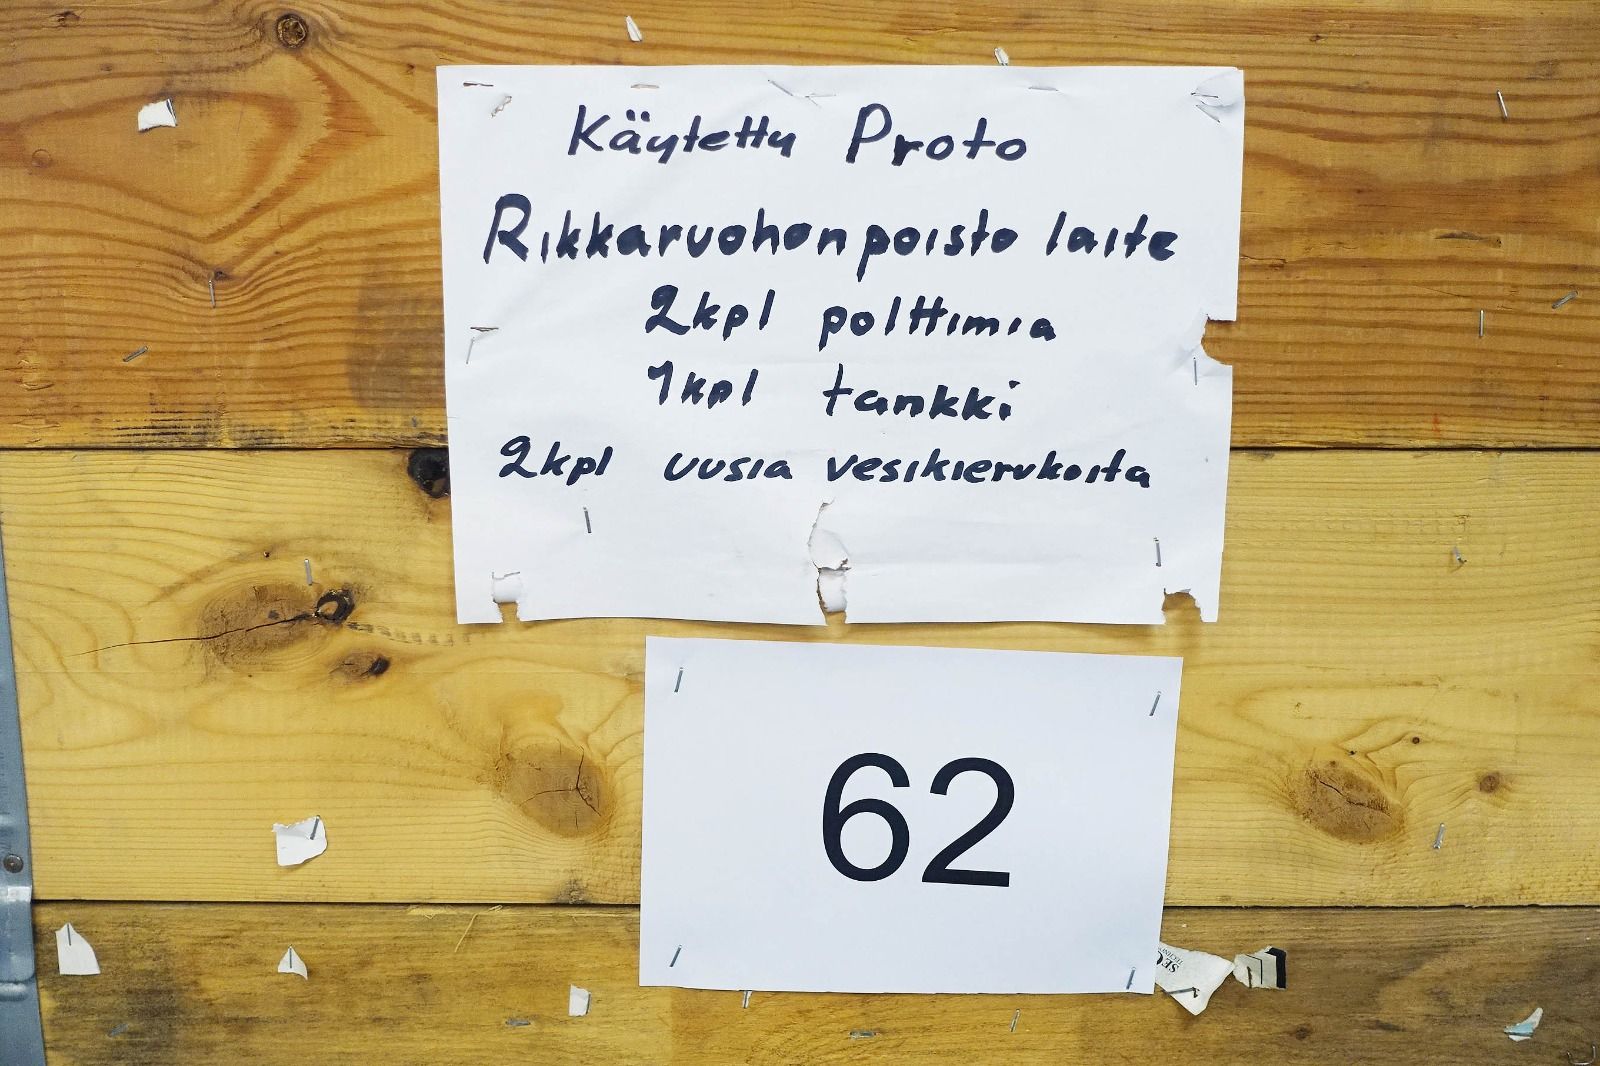 Käytetty Proto
Rikkaruohonpoisto laite
2kpl polttimia
1kpl tankki
2kpl uusia vesikierukoita
62